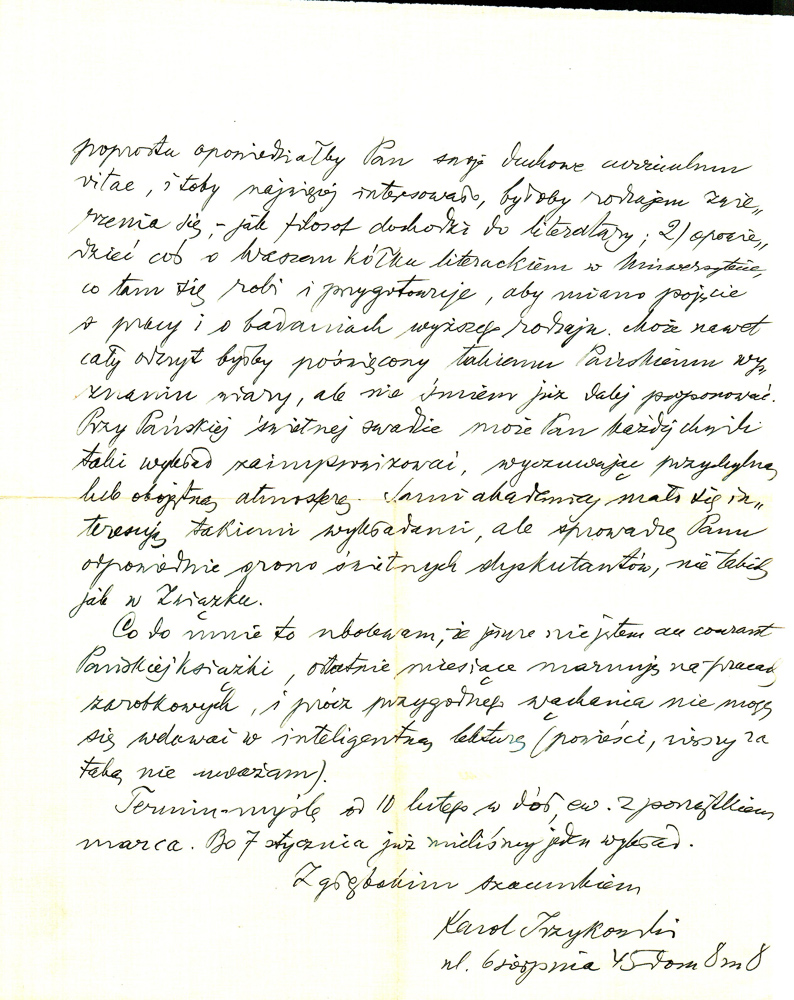 poprostu opowiedziałby Pan swoje duchowe curriculum
vitae, i toby najwięcej interesowało, byłoby rodzajem zwie„
rzenia się, – jak filozof dochodzi do literatury; 2) opowie„
dzieć coś o Waszem kółku literackiem w Uniwersytecie,
co tam się robi i przygotowuje, aby miano pojęcie
o pracy i o badaniach wyższego rodzaju. Może nawet
cały odczyt byłby poświęcony takiemu Pańskiemu wy„
znaniu wiary, ale nie śmiem już dalej proponować.
Przy Pańskiej świetnej swadzie może Pan każdej chwili
taki wykład zaimprowizować, wyczuwając przychylną
lub obojętną atmosferę. Sami akademicy mało się in„
teresują takiemi wykładami, ale sprowadzę Panu
odpowiednie grono świetnych dyskutantów, nie takich
jak w Związku.
Co do mnie to ubolewam, że jeszcze nie jestem au courant
Pańskiej książki, ostatnie miesiące marnuję na pracach
zarobkowych, i prócz przygodnego wąchania nie mogę
się wdawać w inteligentną lekturę (powieści, rzeszy za
taką nie uważam).
Termin – myślę od 10 lutego w dół, ew. z początkiem
marca. Bo 7 stycznia już mieliśmy jeden wykład.
Z głębokim szacunkiem
Karol Irzykowski
ul. 6 sierpnia 45 dom 8 m 8